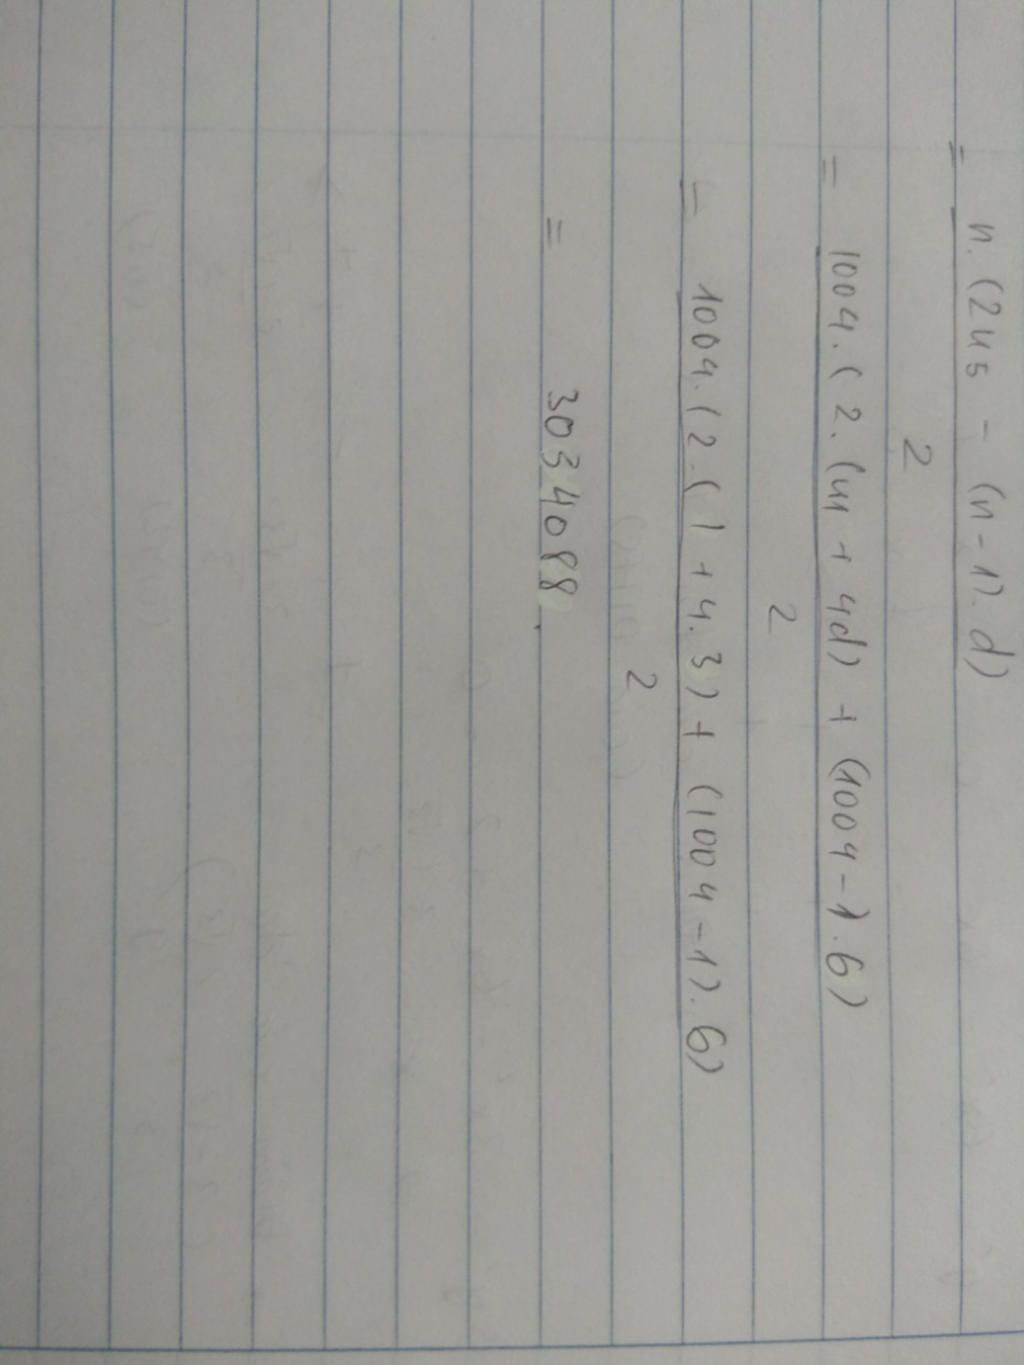 = n.(2u5 - (n-1).d)
2
= 1004.(2.(u1 + 4d) + (1004-1).6)
2
= 1004.(2.(1 + 4.3) + (1004-1).6)
2
= 3034088.